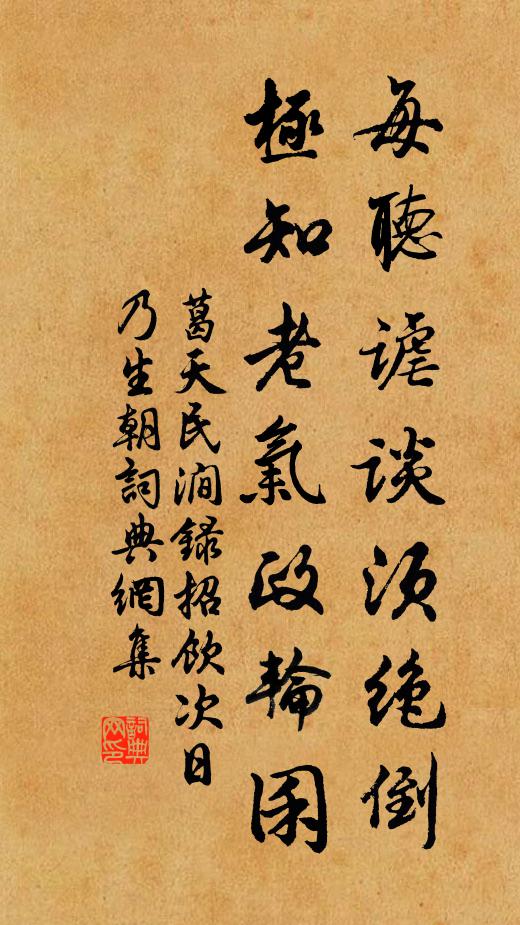 每聽謔談須絕倒
極知老氣政輪囷
葛天民澗録招飲次日
乃生朝詞典網集
詞典網印